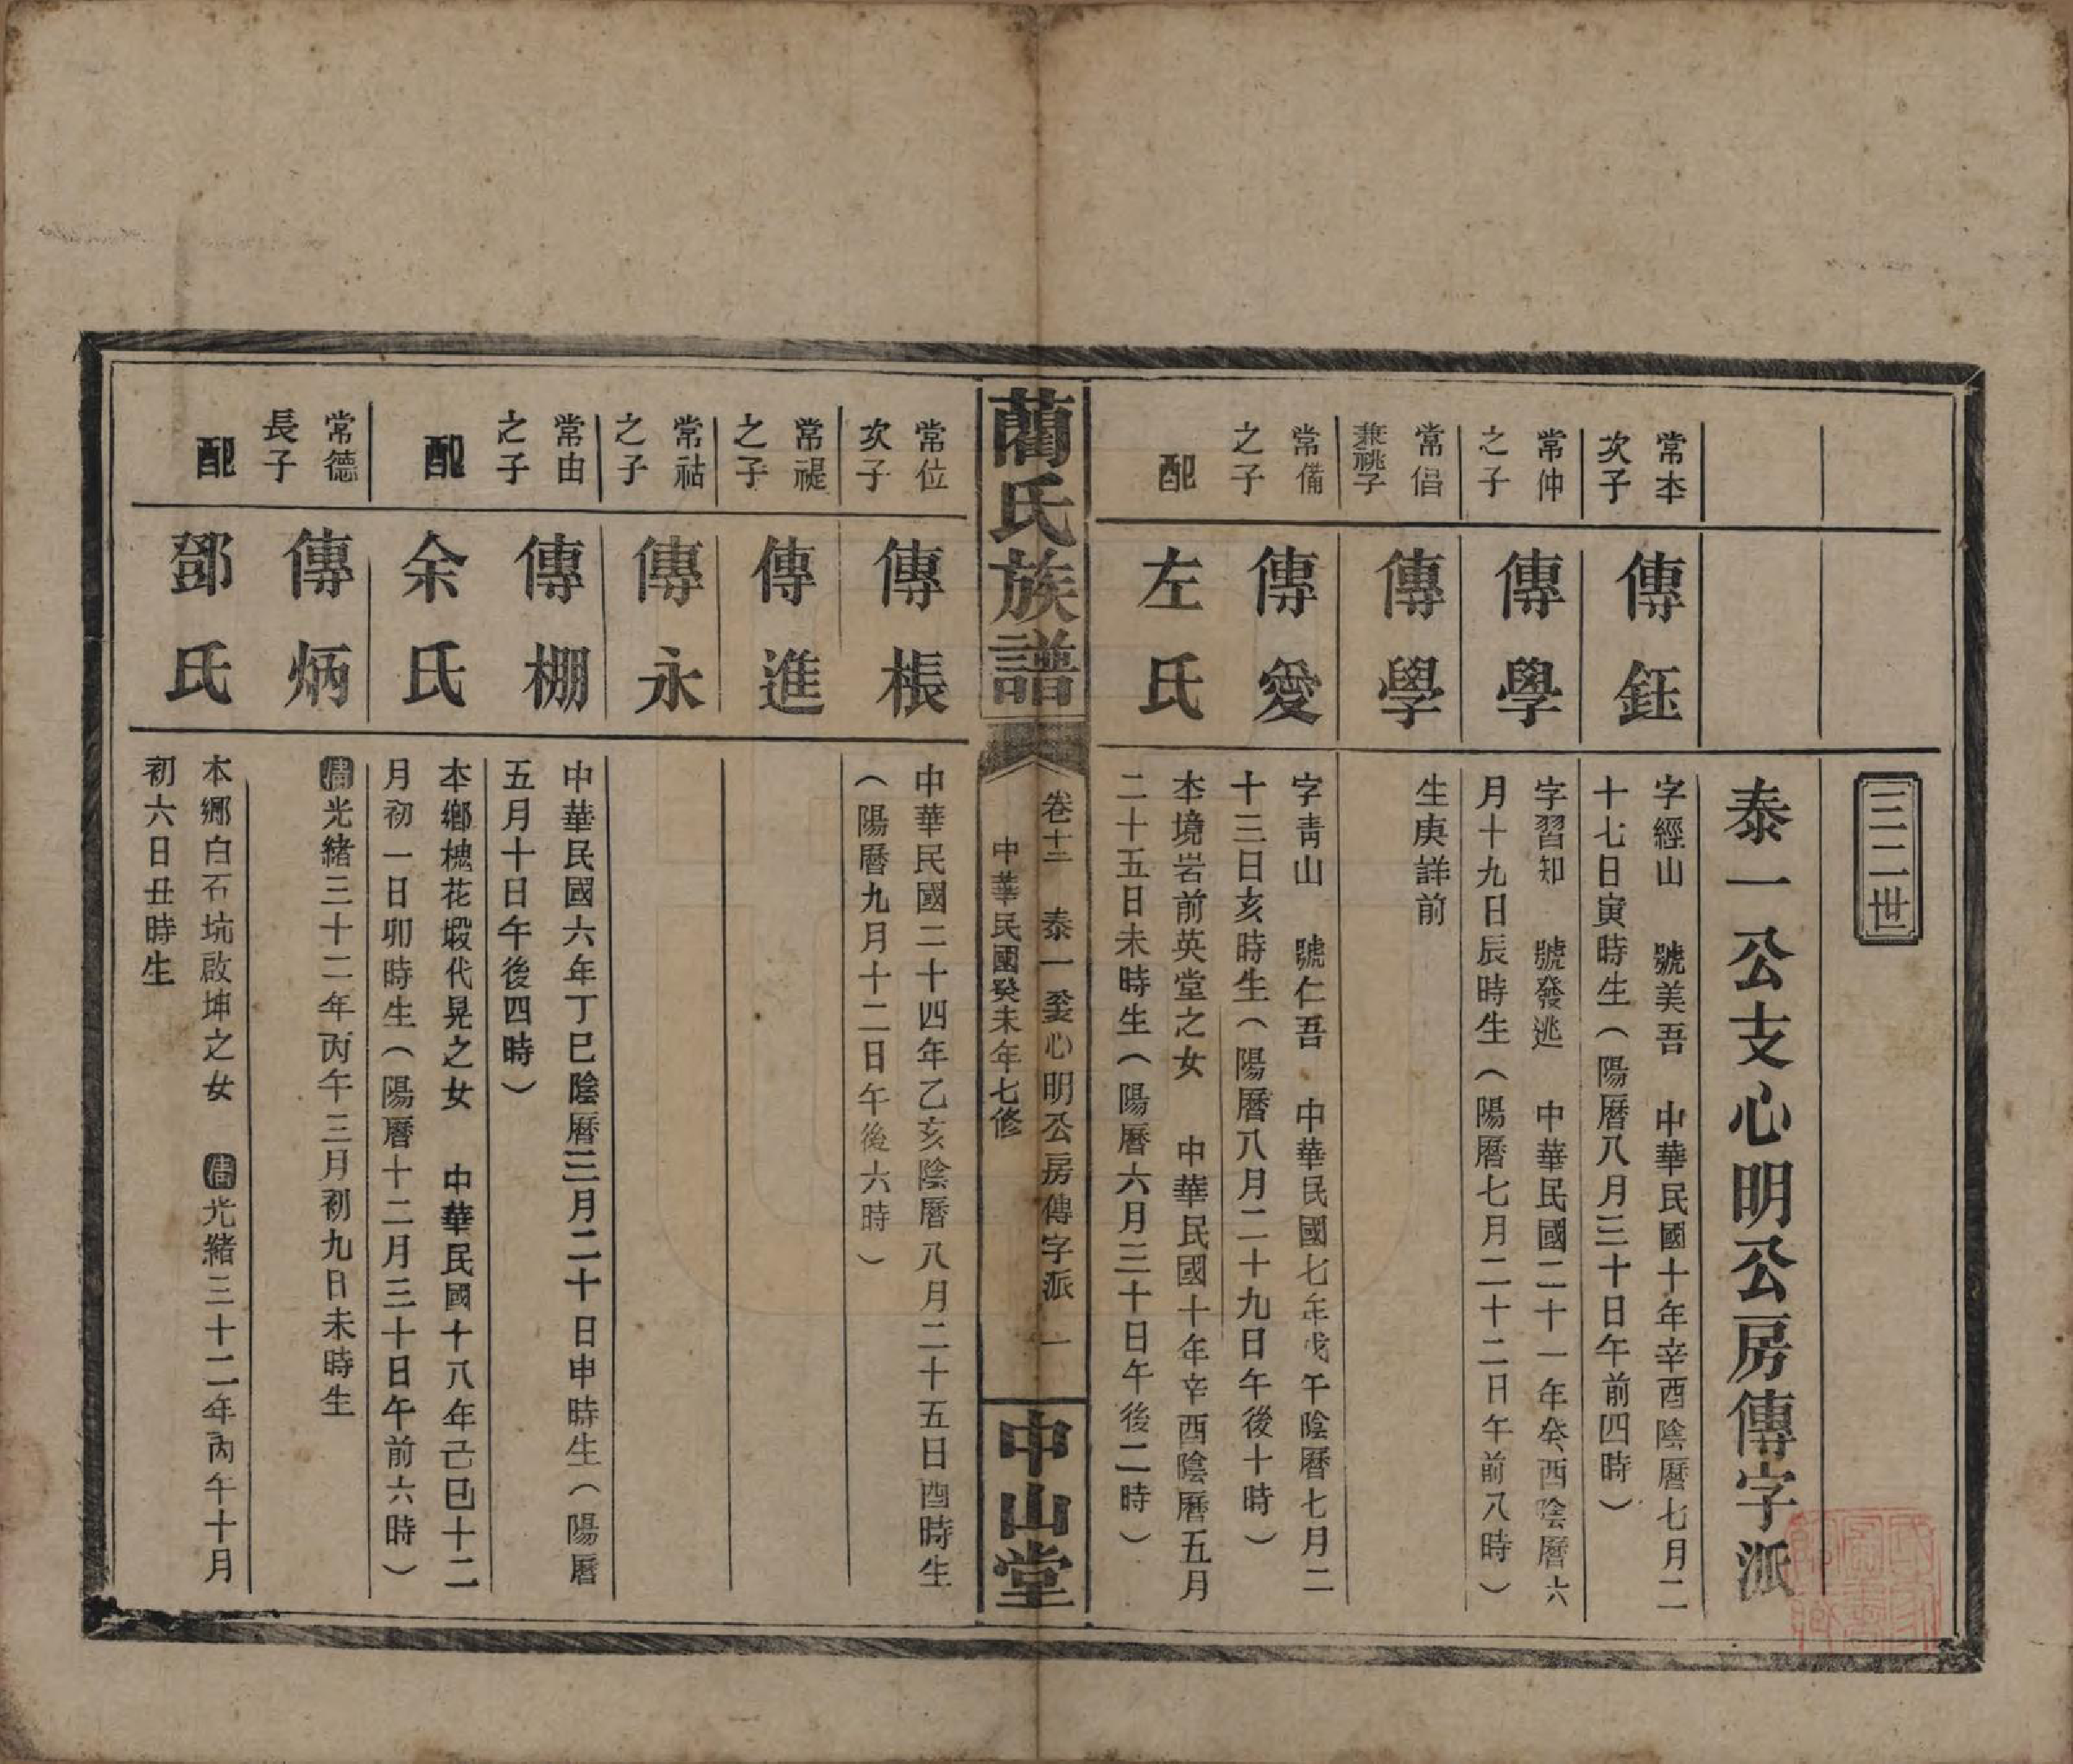 三二世
泰一公支心明公房傳字派
常本次子
傳鈺
字經山　號美吾　中華民國十年辛酉陰曆七月二
十七日寅時生（陽曆八月三十日午前四時）
常仲之子
傳學
字習知　號發逃　中華民國二十一年癸酉陰曆六
月十九日辰時生（陽曆七月二十二日午前八時）
常侣兼祧子
傳學
生庚詳前
常備之子
傳愛
字青山　號仁吾　中華民國七年戊午陰曆七月二
十三日亥時生（陽曆八月二十九日午後十時）
配
左氏
本境岩前英堂之女　中華民國十年辛酉陰曆五月
二十五日未時生（陽曆六月三十日午後二時）
藺氏族譜
卷十三　泰一公支心明公房傳字派　一
中華民國癸未年七修
中山堂
常位次子
傳棖
中華民國二十四年乙亥陰曆八月二十五日酉時生
（陽曆九月十二日午後六時）
常禔之子
傳進
常祜之子
傳永
常由之子
傳棚
中華民國六年丁巳陰曆三月二十日申時生（陽曆
五月十日午後四時）
配
余氏
本鄉槐花塅代晃之女　中華民國十八年己巳十二
月初一日卯時生（陽曆十二月三十日午前六時）
常德長子
傳炳
清光緒三十二年丙午三月初九日未時生
配
鄧氏
本鄉白石坑啟坤之女　清光緒三十二年丙午十月
初六日丑時生